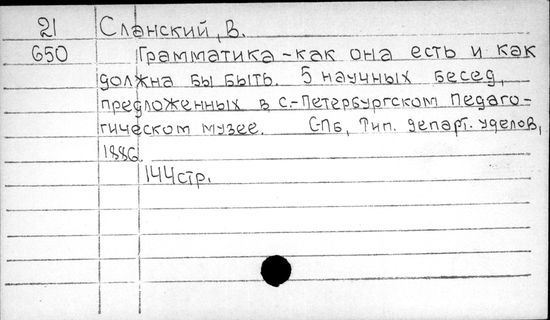 21 Сланский, В.
650 Грамматика - как она есть и как
должна бы быть. 5 научных бесед,
предложенных в С.-Петербургском педаго-
гическом музее. СПб, Тип. департ. уделов,
1886.
144 стр.